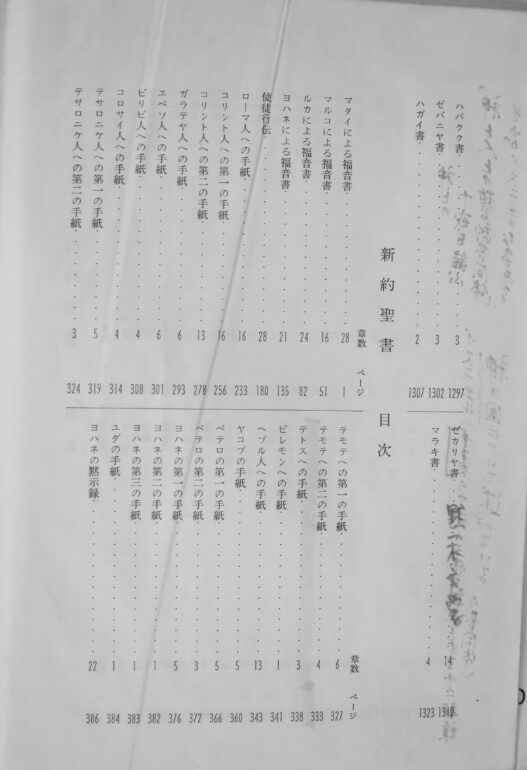 ハバクク書 3 1297
ゼパニヤ書 3 1302
ハガイ書 2 1307
ゼカリヤ書 14 1310
マラキ書 4 1323
新約聖書 目次
章数 ページ
マタイによる福音書 28 1
マルコによる福音書 16 51
ルカによる福音書 24 82
ヨハネによる福音書 21 135
使徒行伝 28 180
ローマ人への手紙 16 233
コリント人への第一の手紙 16 256
コリント人への第二の手紙 13 278
ガラテヤ人への手紙 6 293
エペソ人への手紙 6 301
ピリピ人への手紙 4 308
コロサイ人への手紙 4 314
テサロニケ人への第一の手紙 5 319
テサロニケ人への第二の手紙 3 324
章数 ページ
テモテへの第一の手紙 6 327
テモテへの第二の手紙 4 333
テトスへの手紙 3 338
ピレモンへの手紙 1 341
ヘブル人への手紙 13 343
ヤコブの手紙 5 360
ペテロの第一の手紙 5 366
ペテロの第二の手紙 3 372
ヨハネの第一の手紙 5 376
ヨハネの第二の手紙 1 382
ヨハネの第三の手紙 1 383
ユダの手紙 1 384
ヨハネの黙示録 22 386